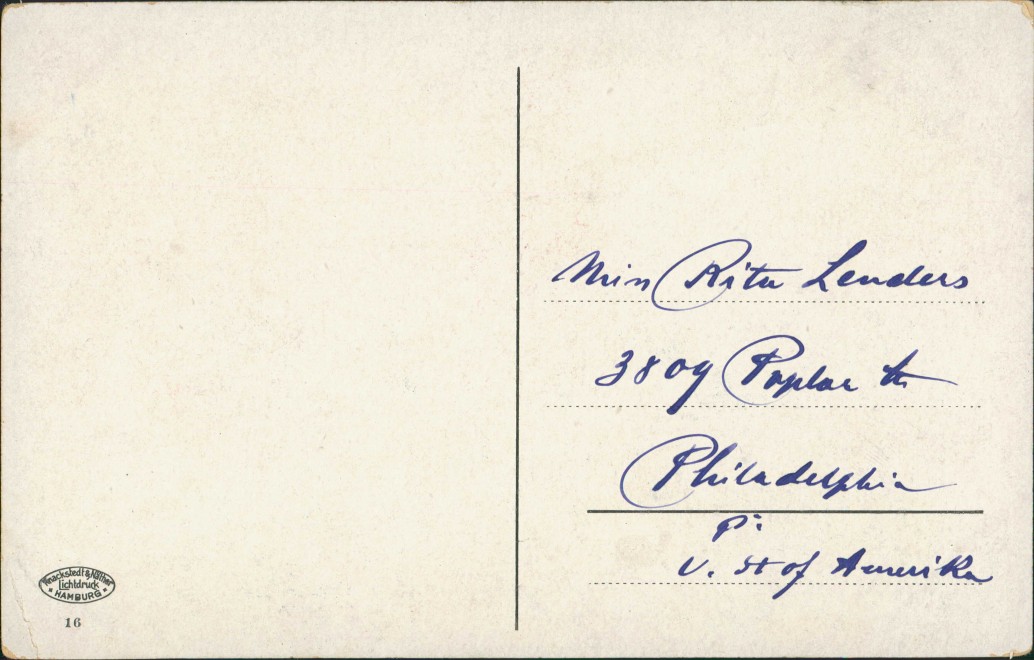 Miss Rita Lenders
3809 Poplar St
Philadelphia
Pa
U. St of Amerika
Knackstedt & Näther
Lichtdruck
HAMBURG
16